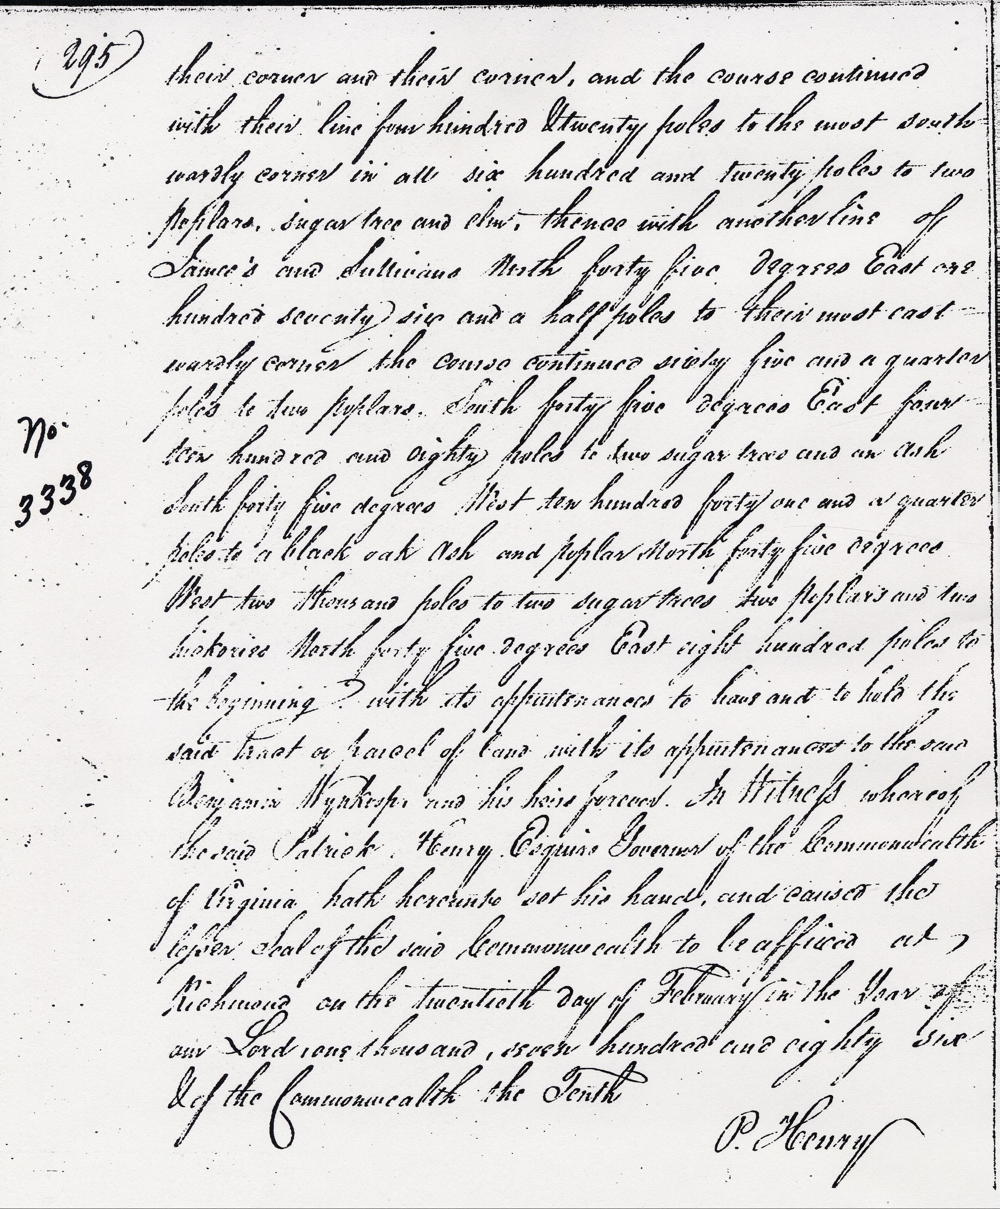 295
their corner and their corner, and the course continued
with their line four hundred & twenty poles to the most south
wardly corner in all six hundred and twenty poles to two
Poplars, sugar tree and elm, thence with another line of
James's and Sullivans North forty five degrees East one
hundred seventy six and a half poles to their most east
wardly corner the course continued sixty five and a quarter
poles to two Poplars. South forty five degrees East four
teen hundred and eighty poles to two sugar trees and an Ash
South forty five degrees West ten hundred forty one and a quarter
poles to a black oak Ash and Poplar North forty five degrees
West two thousand poles to two sugar trees two Poplars and two
hickories North forty five degrees East eight hundred poles to
the beginning with its appurtenances to have and to hold the
said Tract or parcel of land with its appurtenances to the said
Benjamin and his heirs forever. In Witness whereof
the said Patrick Henry Esquire Governor of the Commonwealth
of Virginia hath hereunto set his hand, and caused the
lesser Seal of the said Commonwealth to be affixed at
Richmond on the twentieth day of February in the Year of
our Lord one thousand, seven hundred and eighty six
& of the Commonwealth the Tenth
P. Henry
No.
3338